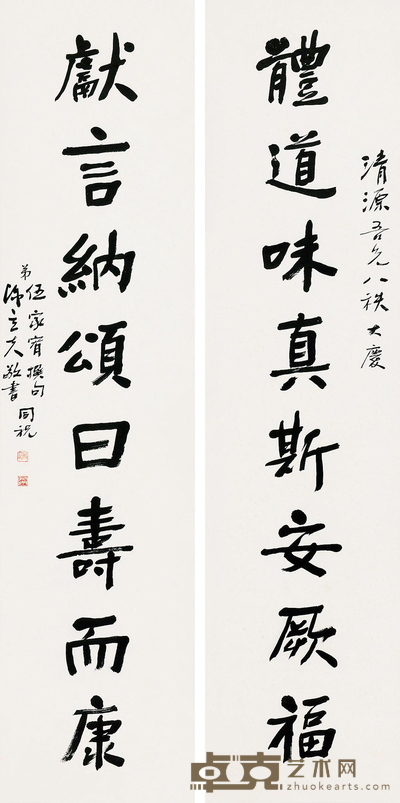 清源吾兄八秩大慶
體道味真斯安厥福
獻言納頌曰壽而康
弟伍家宥撰句
陳立夫敬書 同祝
卓克艺术网
zhuokearts.com